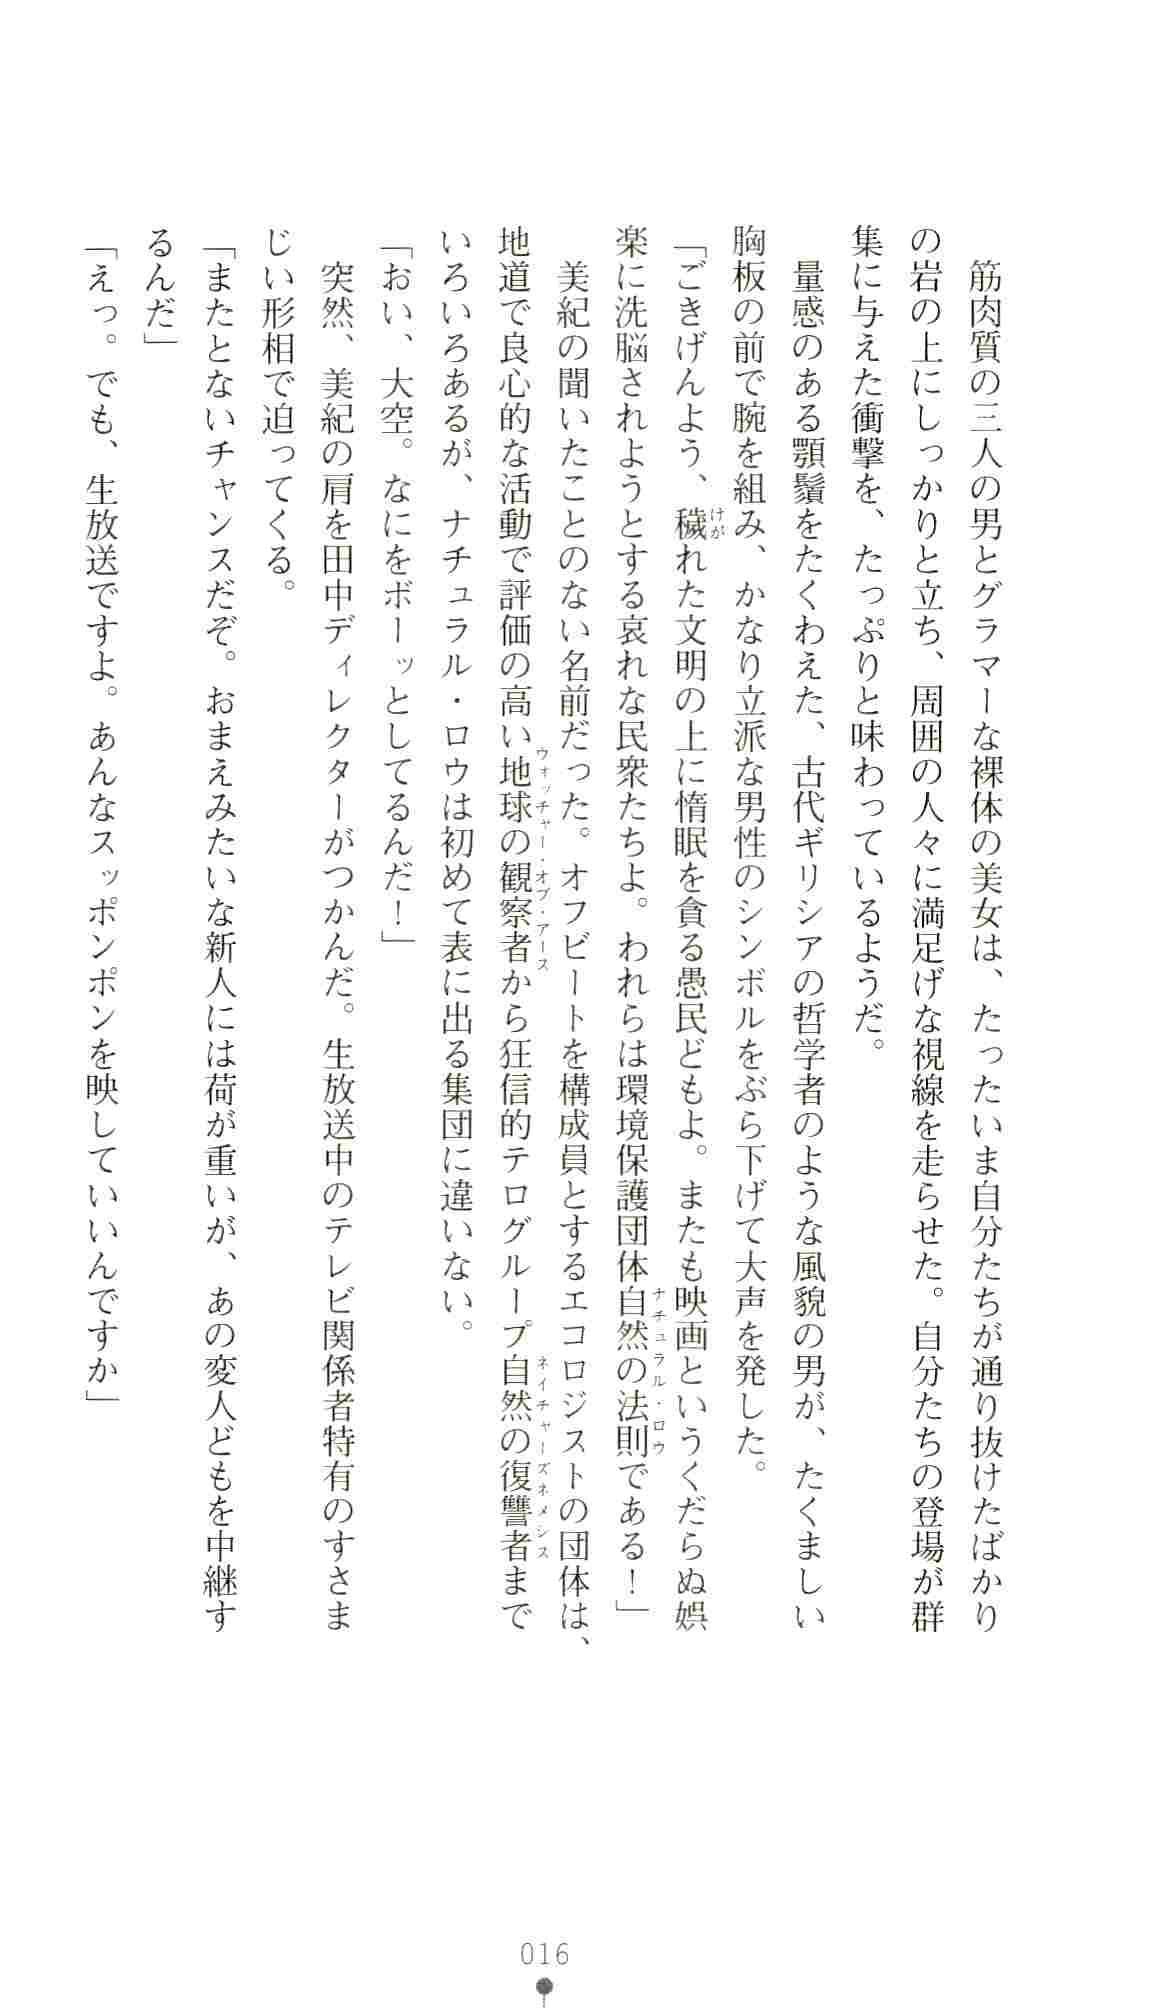 筋肉質の三人の男とグラマーな裸体の美女は、たったいま自分たちが通り抜けたばかり
の岩の上にしっかりと立ち、周囲の人々に満足げな視線を走らせた。自分たちの登場が群
集に与えた衝撃を、たっぷりと味わっているようだ。
量感のある顎鬚をたくわえた、古代ギリシアの哲学者のような風貌の男が、たくましい
胸板の前で腕を組み、かなり立派な男性のシンボルをぶら下げて大声を発した。
「ごきげんよう、穢れた文明の上に惰眠を貪る愚民どもよ。またも映画というくだらぬ娯
けが
楽に洗脳されようとする哀れな民衆たちよ。われらは環境保護団体自然の法則である！」
ナチュラル・ロウ
美紀の聞いたことのない名前だった。オフビートを構成員とするエコロジストの団体は、
地道で良心的な活動で評価の高い地球の観察者から狂信的テログループ自然の復讐者まで
ウォッチャー・オブ・アース
ネイチャーズネメシス
いろいろあるが、ナチュラル・ロウは初めて表に出る集団に違いない。
「おい、大空。なにをボーッとしてるんだ！」
突然、美紀の肩を田中ディレクターがつかんだ。生放送中のテレビ関係者特有のすさま
じい形相で迫ってくる。
「またとないチャンスだぞ。おまえみたいな新人には荷が重いが、あの変人どもを中継す
るんだ」
「えっ。でも、生放送ですよ。あんなスッポンポンを映していいんですか」
016